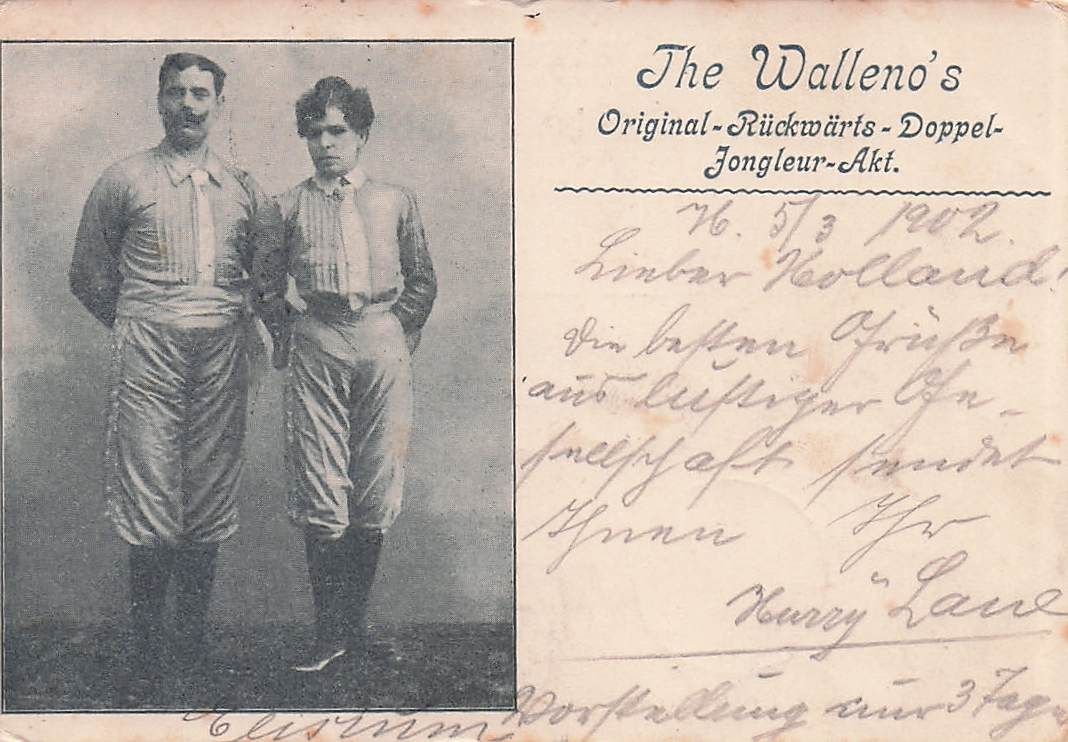 The Walleno's
Original-Rückwärts-Doppel-
Jongleur-Akt.
H. 5/3 1902.
Lieber Holland!
Die besten Grüße
aus lustiger Ge-
sellschaft sendet
Ihnen Ihr
Harry Lane
Vorstellung nur 3 Tage